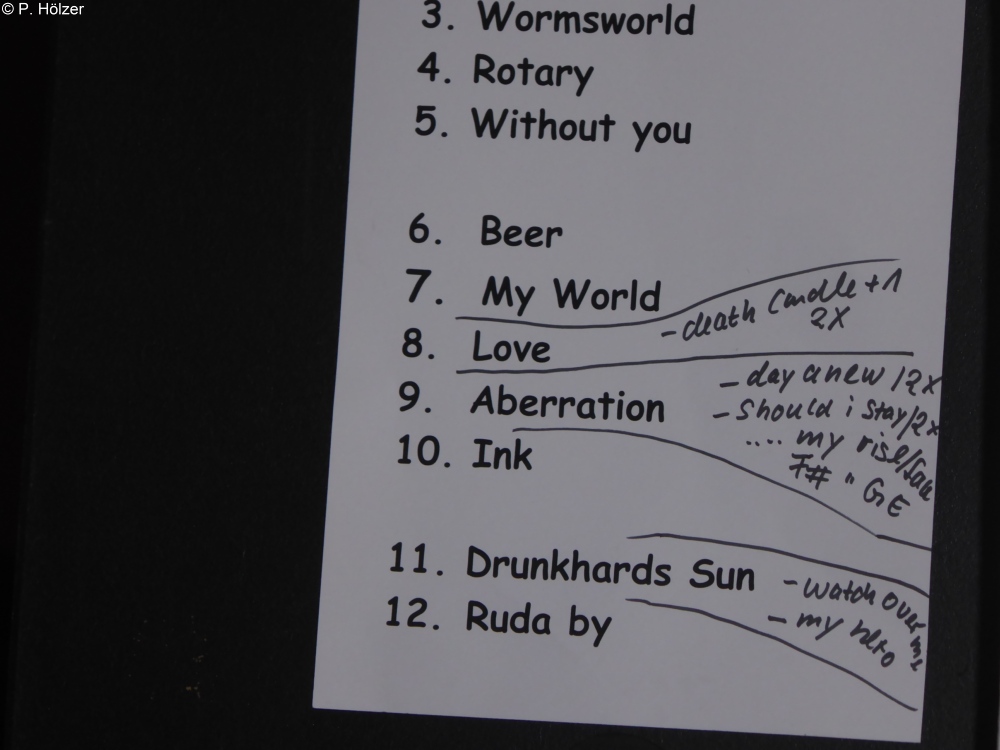 © P. Hölzer
3. Wormsworld
4. Rotary
5. Without you
6. Beer
7. My World
- death candle + 1
2X
8. Love
9. Aberration
- day anew / 2x
- Should i stay / 2x
.... my rise / fall
F# " G E
10. Ink
11. Drunkhards Sun
- watch over me
12. Ruda by
- my hero